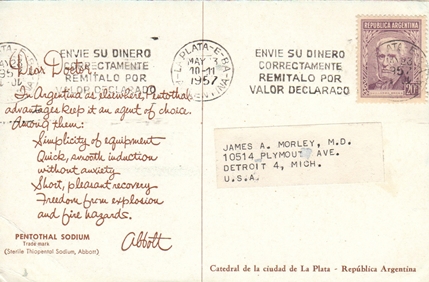 ENVIE SU DINERO
CORRECTAMENTE
REMITALO POR
VALOR DECLARADO
LA PLATA-E-RA
MAY 3
10-11
1957
ENVIE SU DINERO
CORRECTAMENTE
REMITALO POR
VALOR DECLARADO
REPUBLICA ARGENTINA
20
Dear Doctor:
In Argentina as elsewhere, Pentothal's
advantages keep it an agent of choice.
Among them:
Simplicity of equipment
Quick, smooth induction
without anxiety
Short, pleasant recovery
Freedom from explosion
and fire hazards.
PENTOTHAL SODIUM
Trade mark
(Sterile Thiopental Sodium, Abbott)
Abbott
JAMES A. MORLEY, M.D.
10514 PLYMOUTH AVE.
DETROIT 4, MICH.
U.S.A.
Catedral de la ciudad de La Plata - República Argentina